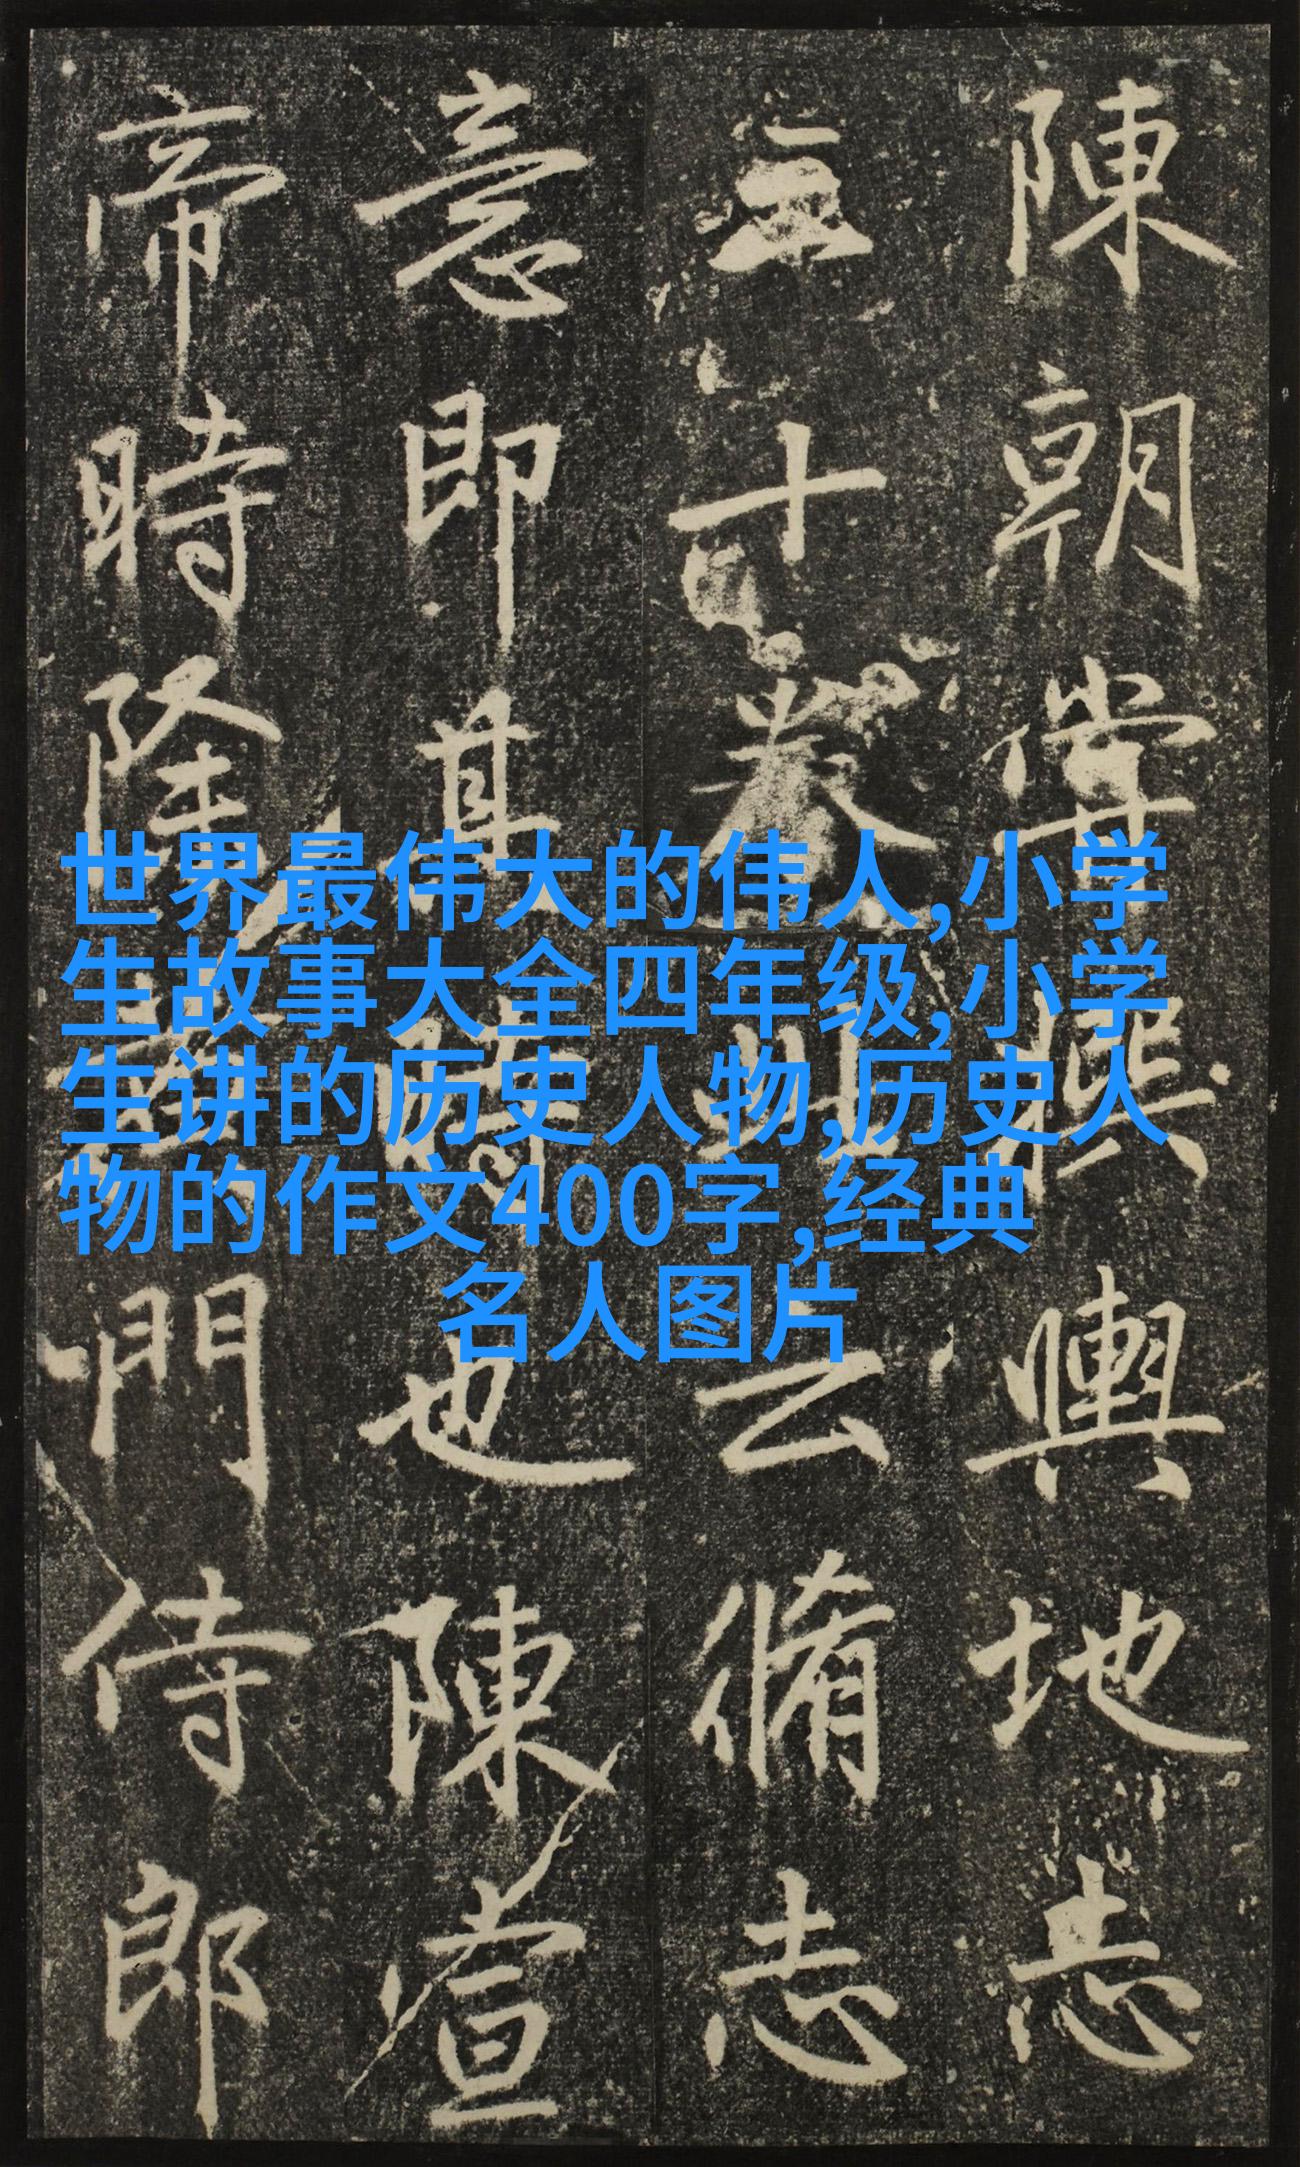 陳朝嘗撰輿地志
三十卷此云脩志
意即其時也陳宣
帝時陸門侍郎
世界最伟大的伟人,小学
生故事大全四年级,小学
生讲的历史人物,历史人
物的作文400字,经典
名人图片